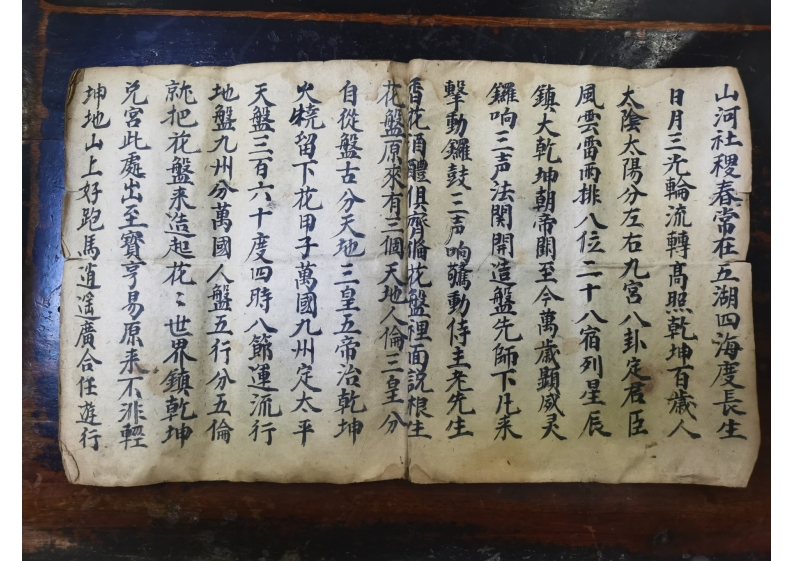 山河社稷春常在五湖四海度長生
日月三光輪流轉髙照乾坤百歲人
太陰太陽分左右九宮八卦定君臣
風雲雷雨排八位二十八宿列星辰
鎮大乾坤朝帝闕至今萬歲顯威灵
鑼响三声法関開造盤先師下凡来
擊動鑼鼓三声响驚動侍主老先生
香花酒醴俱齊備花盤裡面説根生
花盤原來有三個天地人倫三皇分
自從盤古分天地三皇五帝治乾坤
火燒留下花甲子萬國九州定太平
天盤三百六十度四時八節運流行
地盤九州分萬國人盤五行分五倫
就把花盤来造起花〻世界鎮乾坤
兑宮此處出至寳亨易原来不非輕
坤地山上好跑馬逍遥廣合任遊行